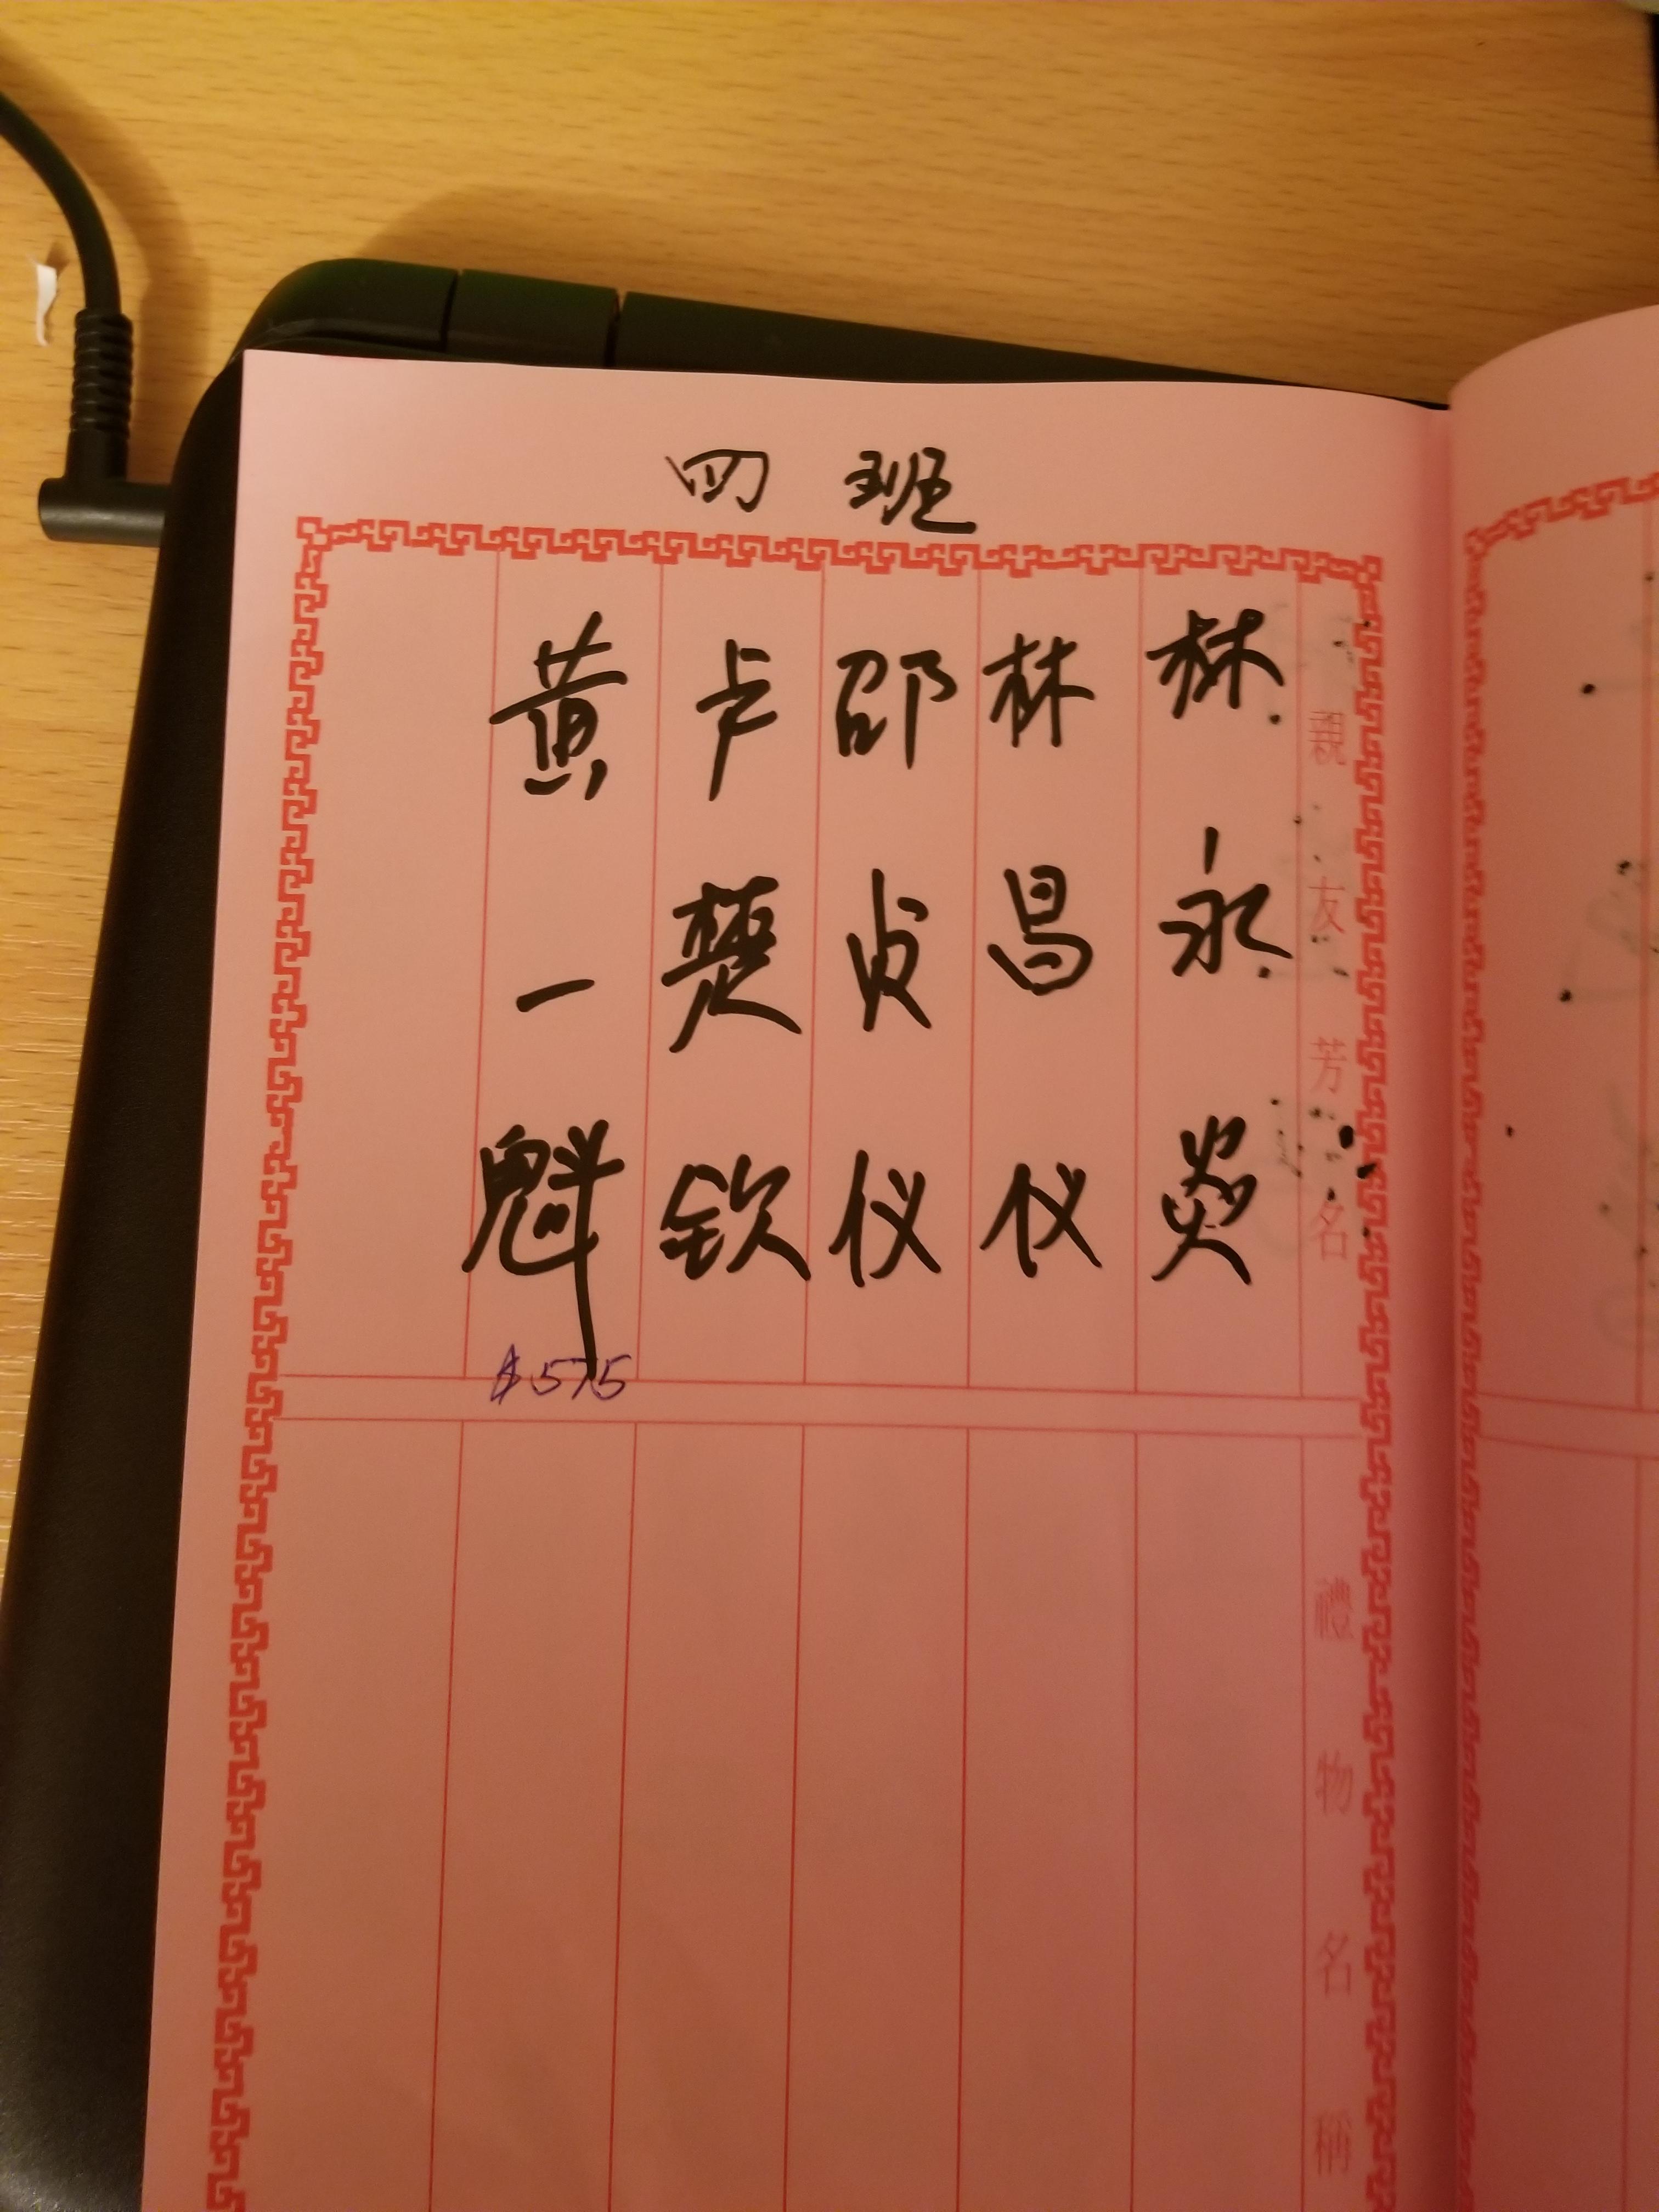 四班
親友芳名
林永炎
林昌仪
邵贞仪
卢楚钦
黄一魁
$575
禮物名稱